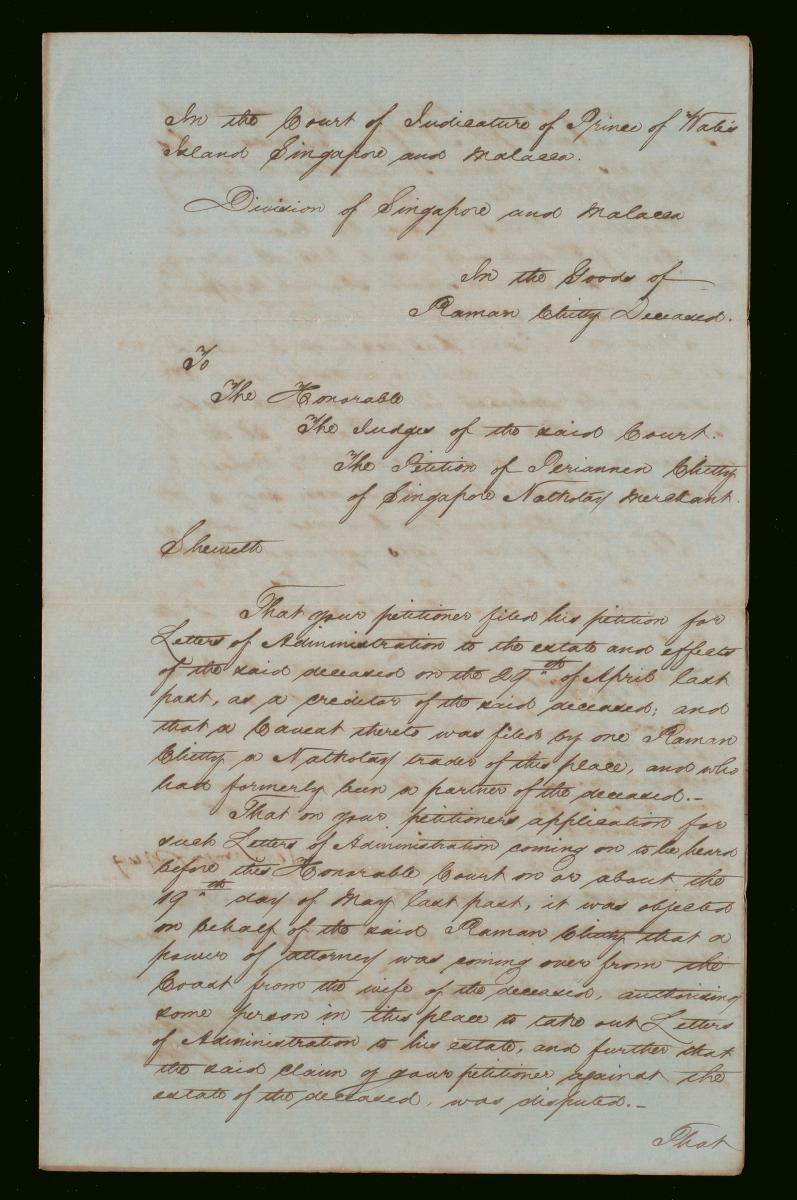 In the Court of Judicature of Prince of Wales
Island Singapore and Malacca.
Division of Singapore and Malacca
In the Goods of
Raman Chitty Deceased.
To
The Honorable
The Judges of the said Court.
The Petition of Periannen Chitty
of Singapore Natkotay Merchant.
Sheweth
That your petitioner filed his petition for
Letters of Administration to the estate and effects
of the said deceased on the 29th of April last
past, as a creditor of the said deceased; and
that a Caveat thereto was filed by one Raman
Chitty a Natkotay trader of this place, and who
had formerly been a partner of the deceased.–
That on your petitioners application for
such Letters of Administration coming on to be heard
before this Honorable Court on or about the
19th day of May last past, it was objected
on behalf of the said Raman Chitty that a
power of attorney was coming over from the
Coast from the wife of the deceased, authorising
some person in this place to take out Letters
of Administration to his estate, and further that
the said claim of your petitioner against the
estate of the deceased, was disputed.–
That